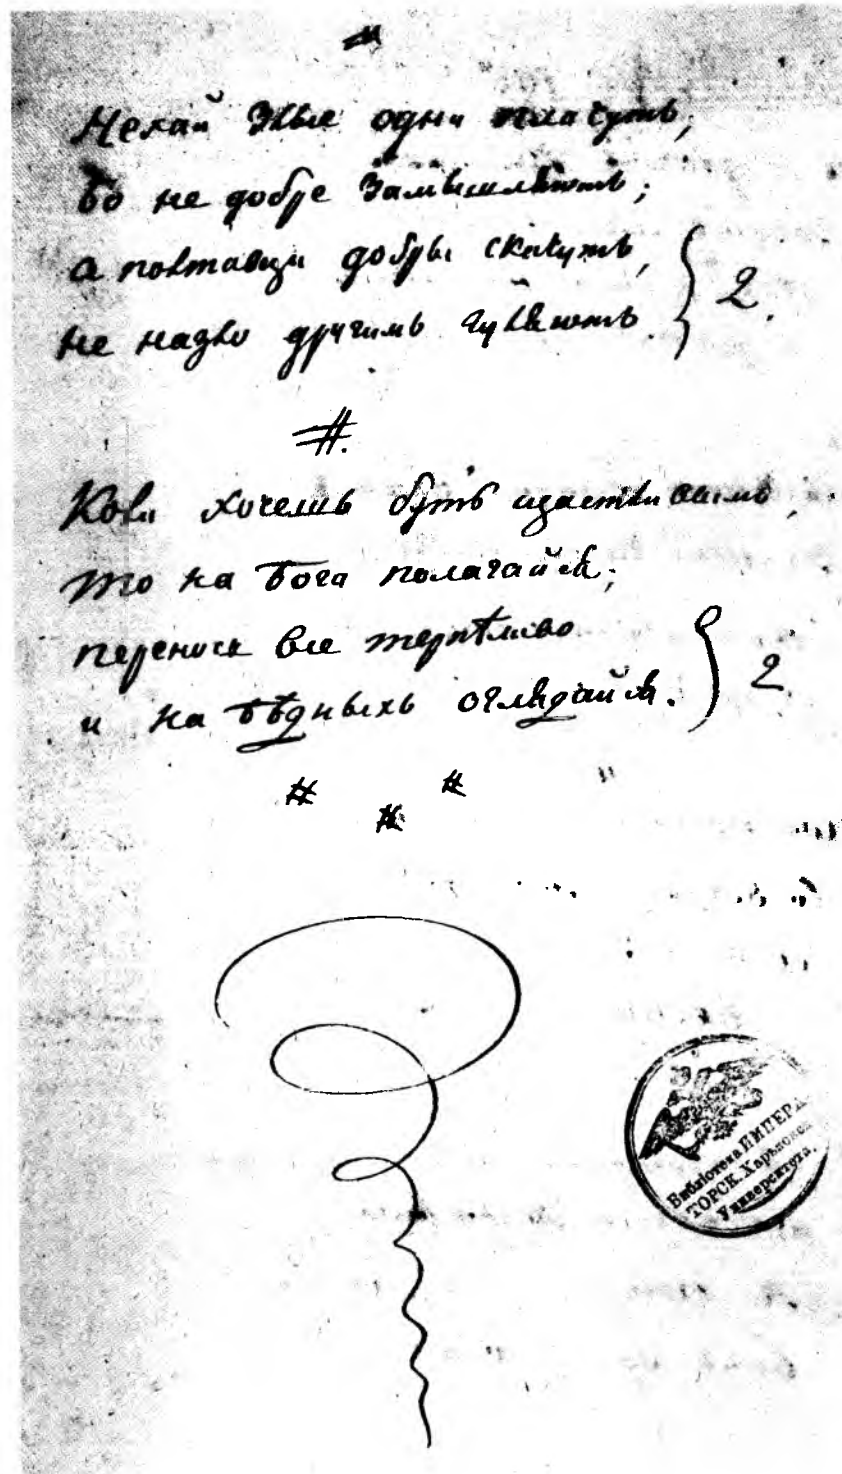 #
Нехай злые одни плачуть,
бо не добре замышляють;
а полтавци добры скачуть,
не назло другимъ гуляють. } 2.
#.
Коли хочешь буть щастливымъ,
то на Бога полагайся;
переносы все терпѣливо
и на бѣдныхъ оглядайся. } 2
# # #
Библіотека ИМПЕРА
ТОРСК. Харьковск
Университета.